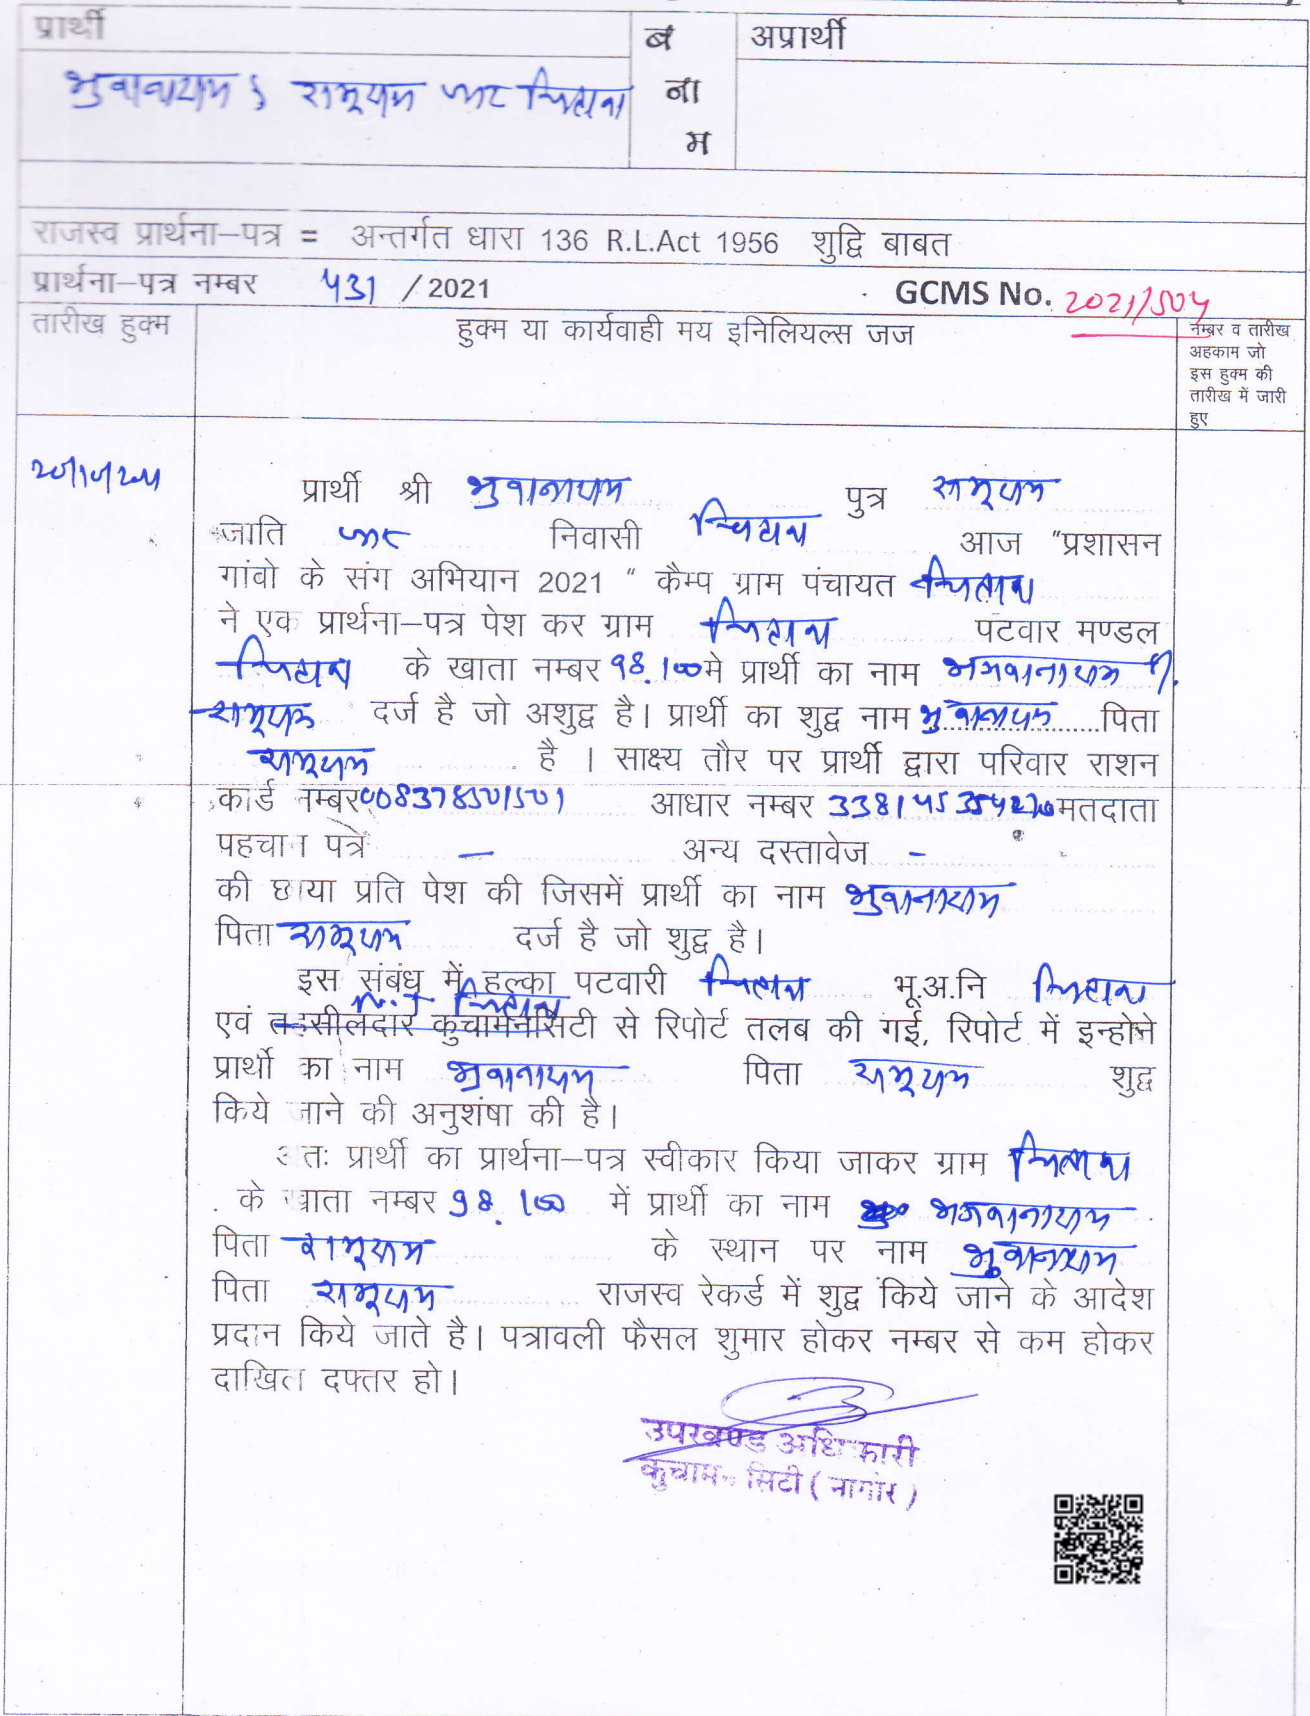 प्रार्थी
ब
ना
म
अप्रार्थी
राजस्व प्रार्थना–पत्र = अन्तर्गत धारा 136 R.L.Act 1956 शुद्वि बाबत
प्रार्थना–पत्र नम्बर 431 / 2021 GCMS No. 2021/504
तारीख हुक्म
हुक्म या कार्यवाही मय इनिलियल्स जज
नम्बर व तारीख
अहकाम जो
इस हुक्म की
तारीख में जारी
हुए
प्रार्थी श्री भुवानाराम पुत्र रामूराम
जाति जाट निवासी चितावा आज "प्रशासन
गांवो के संग अभियान 2021 " कैम्प ग्राम पंचायत चितावा
ने एक प्रार्थना–पत्र पेश कर ग्राम चितावा पटवार मण्डल
चितावा के खाता नम्बर 98.100 मे प्रार्थी का नाम भगवानाराम पि.
रामूराम दर्ज है जो अशुद्व है। प्रार्थी का शुद्व नाम भुवानाराम पिता
रामूराम है । साक्ष्य तौर पर प्रार्थी द्वारा परिवार राशन
कार्ड नम्बर आधार नम्बर मतदाता
पहचान पत्र — अन्य दस्तावेज –
की छाया प्रति पेश की जिसमें प्रार्थी का नाम भुवानाराम
पिता रामूराम दर्ज है जो शुद्व है।
इस संबंध में हल्का पटवारी चितावा भू.अ.नि चितावा
चितावा
एवं तहसीलदार कुचामनसिटी से रिपोर्ट तलब की गई, रिपोर्ट में इन्होने
प्रार्थी का नाम भुवानाराम पिता रामूराम शुद्व
किये जाने की अनुशंषा की है।
अतः प्रार्थी का प्रार्थना–पत्र स्वीकार किया जाकर ग्राम चितावा
के खाता नम्बर 98.100 में प्रार्थी का नाम भगवानाराम
पिता रामूराम के स्थान पर नाम भुवानाराम
पिता रामूराम राजस्व रेकर्ड में शुद्व किये जाने के आदेश
प्रदान किये जाते है। पत्रावली फैसल शुमार होकर नम्बर से कम होकर
दाखिल दफ्तर हो।
उपखण्ड अधिकारी
कुचामन सिटी ( नागौर )